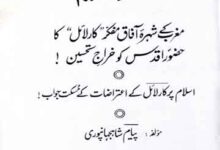 مغرب کے شہرۂ آفاق مفکر "کارلائل" کا
حضور اقدس کو خراج تحسین !
اسلام پر کارلائل کے اعتراضات کے مُسکت جواب !
مؤلفہ : پیام شاہجہانپوری